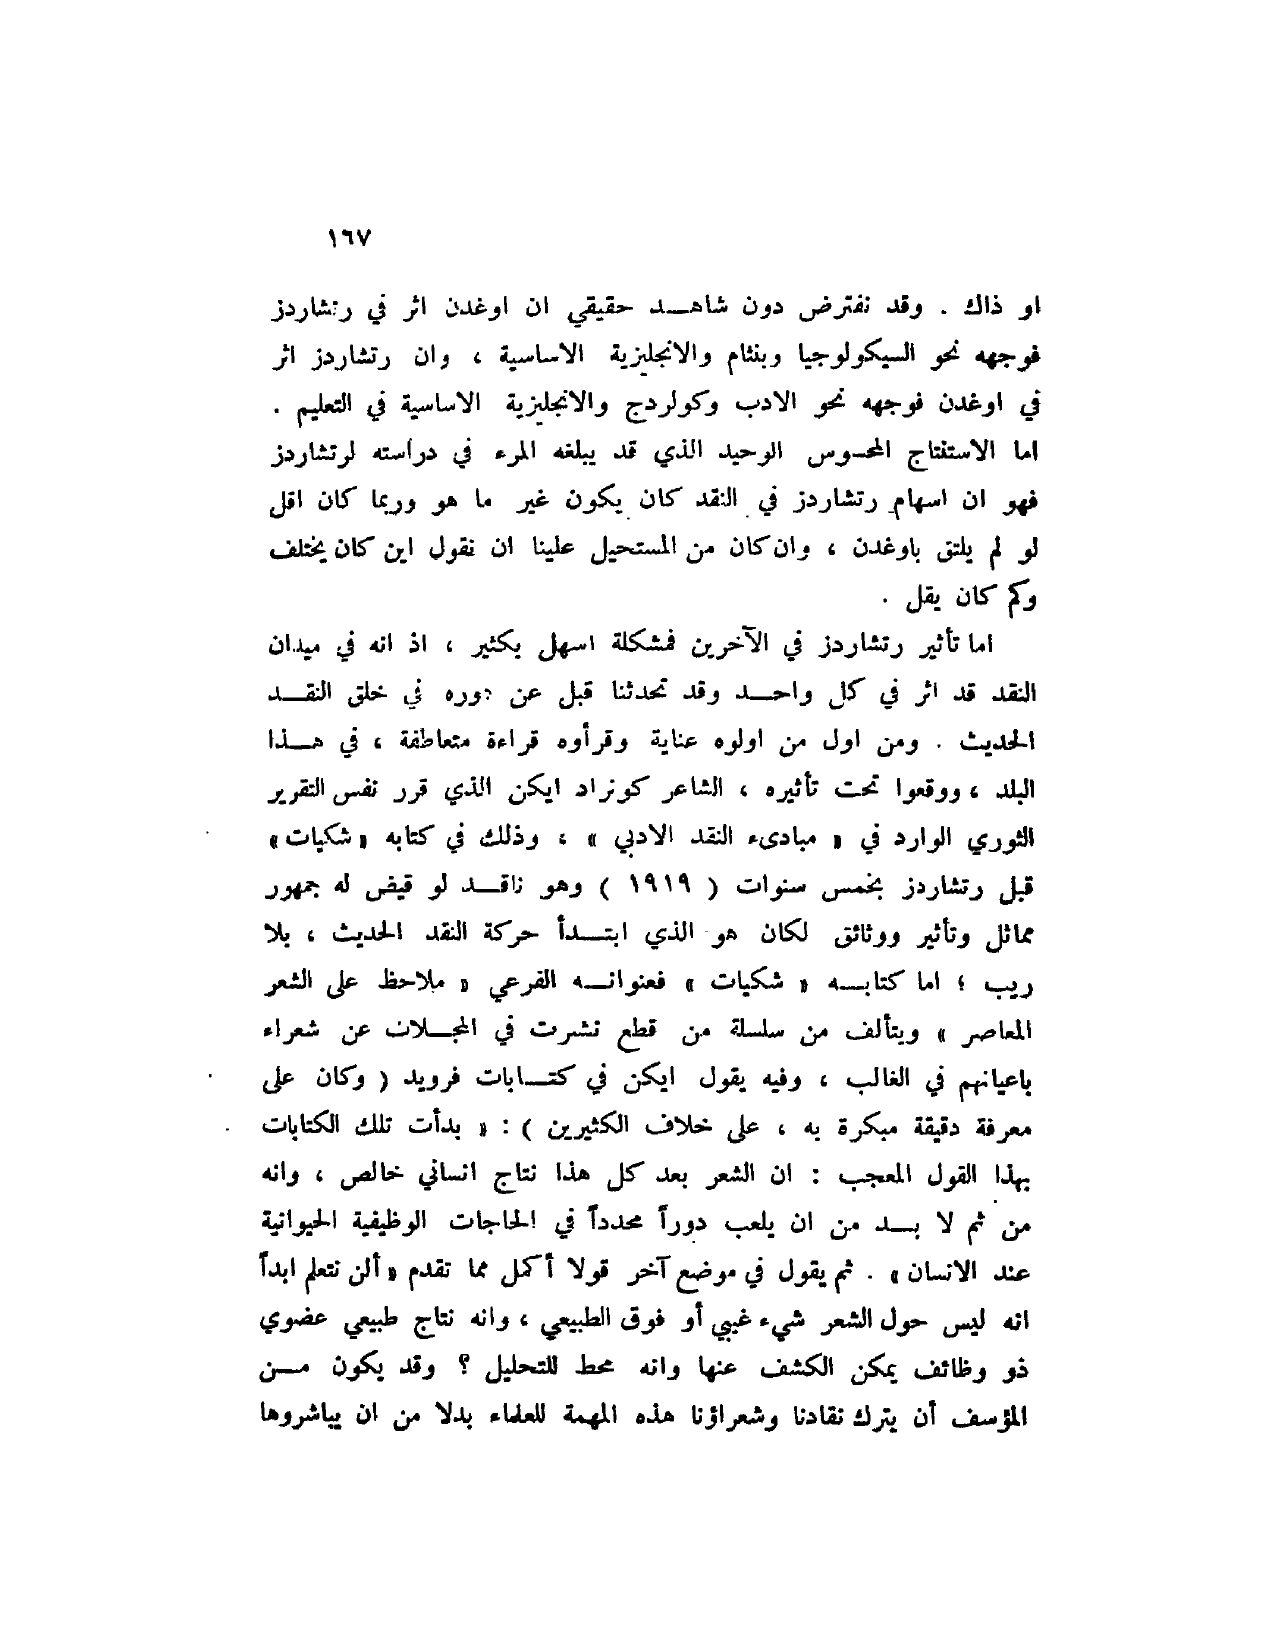 ١٦٧
او ذاك . وقد نفترض دون شاهد حقيقي ان اوغدن اثر في رتشاردز
فوجهه نحو السيكولوجيا وبنثام والانجليزية الاساسية ، وان رتشاردز اثر
في اوغدن فوجهه نحو الادب وكولردج والانجليزية الاساسية في التعليم .
اما الاستنتاج المحسوس الوحيد الذي قد يبلغه المرء في دراسته لرتشاردز
فهو ان اسهام رتشاردز في النقد كان يكون غير ما هو وربما كان اقل
لو لم يلتق باوغدن ، وان كان من المستحيل علينا ان نقول اين كان يختلف
وكم كان يقل .
اما تأثير رتشاردز في الآخرين فمشكلة اسهل بكثير ، اذ انه في ميدان
النقد قد اثر في كل واحد وقد تحدثنا قبل عن دوره في خلق النقد
الحديث . ومن اول من اولوه عناية وقرأوه قراءة متعاطفة ، في هذا
البلد ، ووقعوا تحت تأثيره ، الشاعر كونراد ايكن الذي قرر نفس التقرير
الثوري الوارد في « مبادىء النقد الادبي » ، وذلك في كتابه « شكيات »
قبل رتشاردز بخمس سنوات ( ١٩١٩ ) وهو ناقد لو قيض له جمهور
مماثل وتأثير ووثائق لكان هو الذي ابتدأ حركة النقد الحديث ، بلا
ريب ؛ اما كتابه « شكيات » فعنوانه الفرعي « ملاحظ على الشعر
المعاصر » ويتألف من سلسلة من قطع نشرت في المجلات عن شعراء
باعيانهم في الغالب ، وفيه يقول ايكن في كتابات فرويد ( وكان على
معرفة دقيقة مبكرة به ، على خلاف الكثيرين ) : « بدأت تلك الكتابات
بهذا القول المعجب : ان الشعر بعد كل هذا نتاج انساني خالص ، وانه
من ثم لا بد من ان يلعب دوراً محدداً في الحاجات الوظيفية الحيوانية
عند الانسان » . ثم يقول في موضع آخر قولا أكمل مما تقدم « ألن نتعلم ابداً
انه ليس حول الشعر شيء غيبي أو فوق الطبيعي ، وانه نتاج طبيعي عضوي
ذو وظائف يمكن الكشف عنها وانه محط للتحليل ؟ وقد يكون من
المؤسف أن يترك نقادنا وشعراؤنا هذه المهمة للعلماء بدلا من ان يباشروها